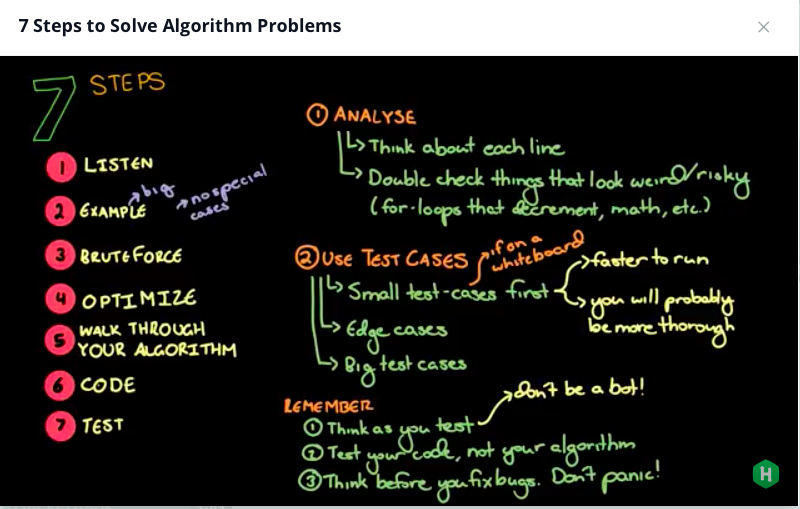 7 Steps to Solve Algorithm Problems
7 STEPS
1 LISTEN
2 EXAMPLE
big
no special
cases
3 BRUTE FORCE
4 OPTIMIZE
5 WALK THROUGH
YOUR ALGORITHM
6 CODE
7 TEST
1 ANALYSE
Think about each line
Double check things that look weird/risky
(for-loops that decrement, math, etc.)
2 USE TEST CASES
if on a
whiteboard
Small test-cases first
faster to run
you will probably
be more thorough
Edge cases
Big test cases
REMEMBER
1 Think as you test
don't be a bot!
2 Test your code, not your algorithm
3 Think before you fix bugs. Don't panic!
H